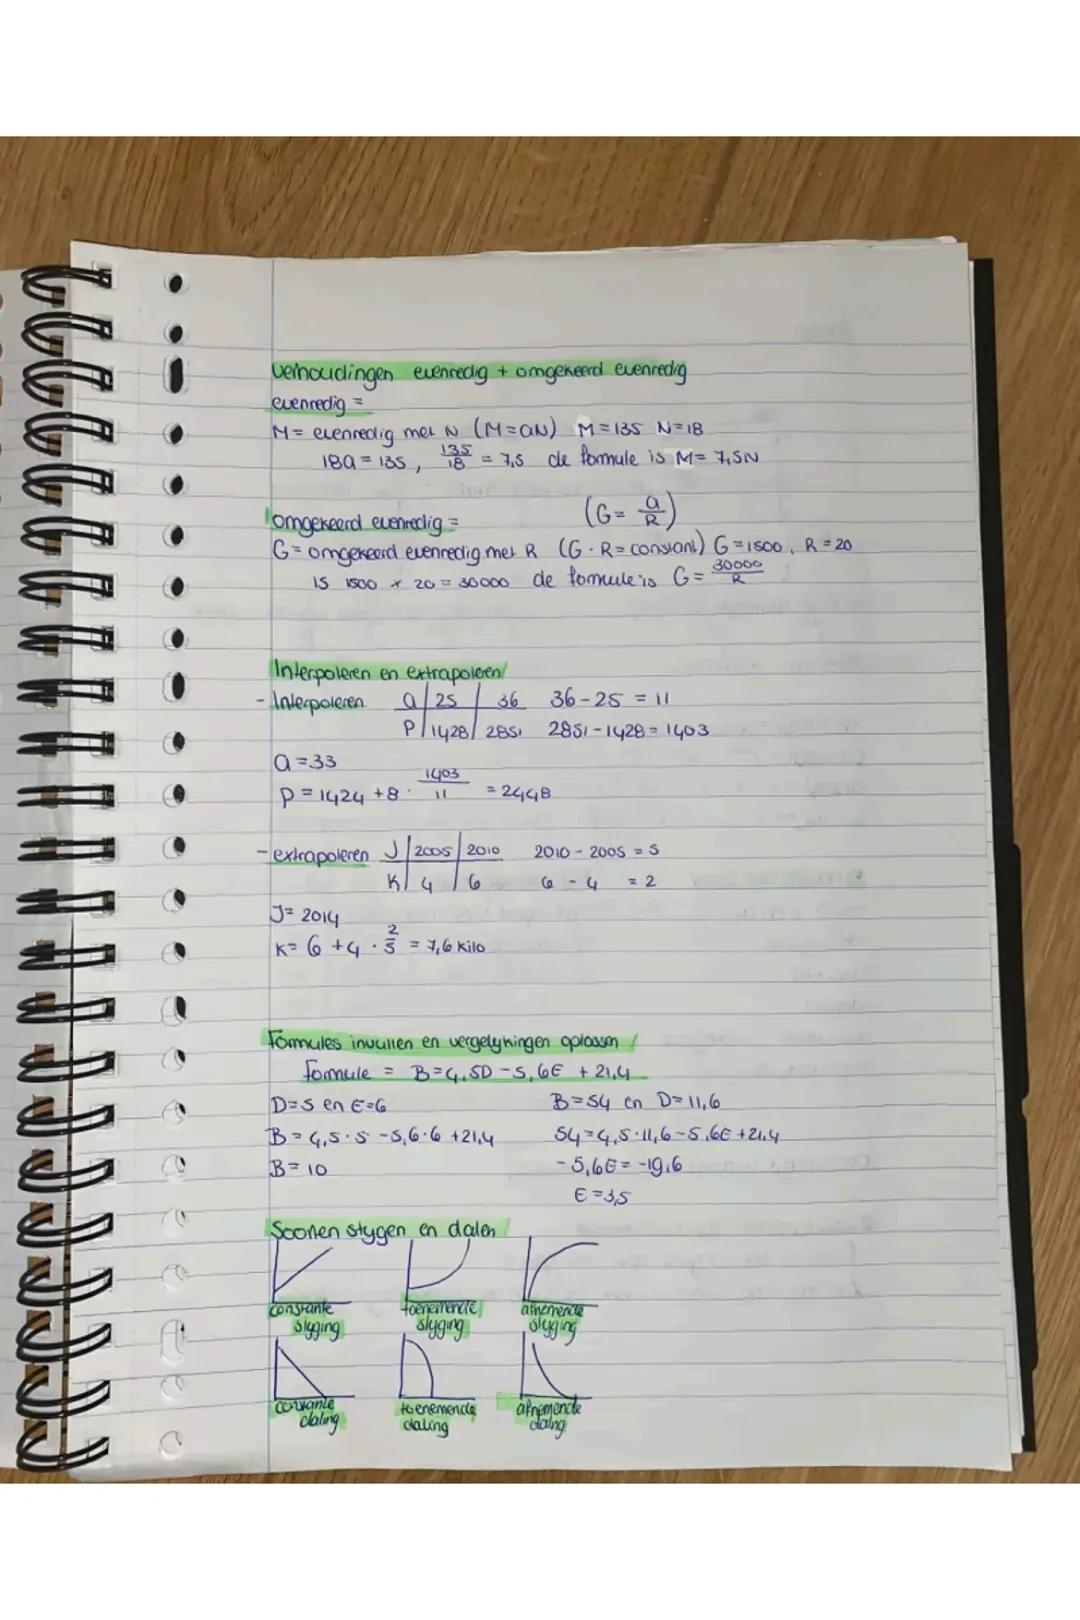 verhoudingen evenredig + omgekeerd evenredig
evenredig =
M= evenredig met N (M=aN) M=135 N=18
18a=135, 135/18 = 7,5 de formule is M= 7,5N
omgekeerd evenredig = (G= a/R)
G= omgekeerd evenredig met R (G · R= constant) G=1500, R=20
is 1500 × 20 = 30000 de formule is G= 30000/R
Interpoleren en extrapoleren/
- Interpoleren a | 25 | 36 36-25 = 11
P | 1428 | 2851 2851-1428 = 1403
a=33
P = 1424 +8 · 1403/11 = 2448
- extrapoleren J | 2005 | 2010 2010 - 2005 = 5
K | 4 | 6 6 - 4 = 2
J= 2014
K= 6 +4 · 2/5 = 7,6 kilo
Formules invullen en vergelykingen oplossen /
formule = B=4,5D -5,6E + 21,4
D=5 en E=6 B=54 en D=11,6
B= 4,5·5 -5,6·6 +21,4 54=4,5·11,6-5,6E+21,4
B= 10 -5,6E= -19,6
E=3,5
Soorten stygen en dalen /
constante styging toenemende styging afnemende styging
constante daling toenemende daling afnemende daling